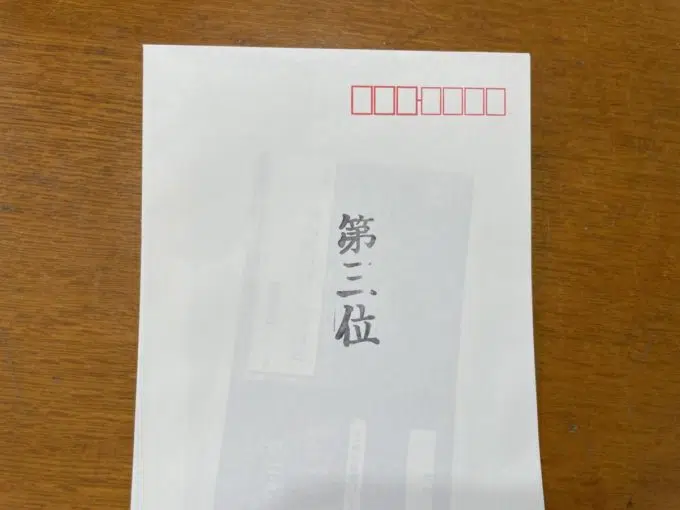 第三位